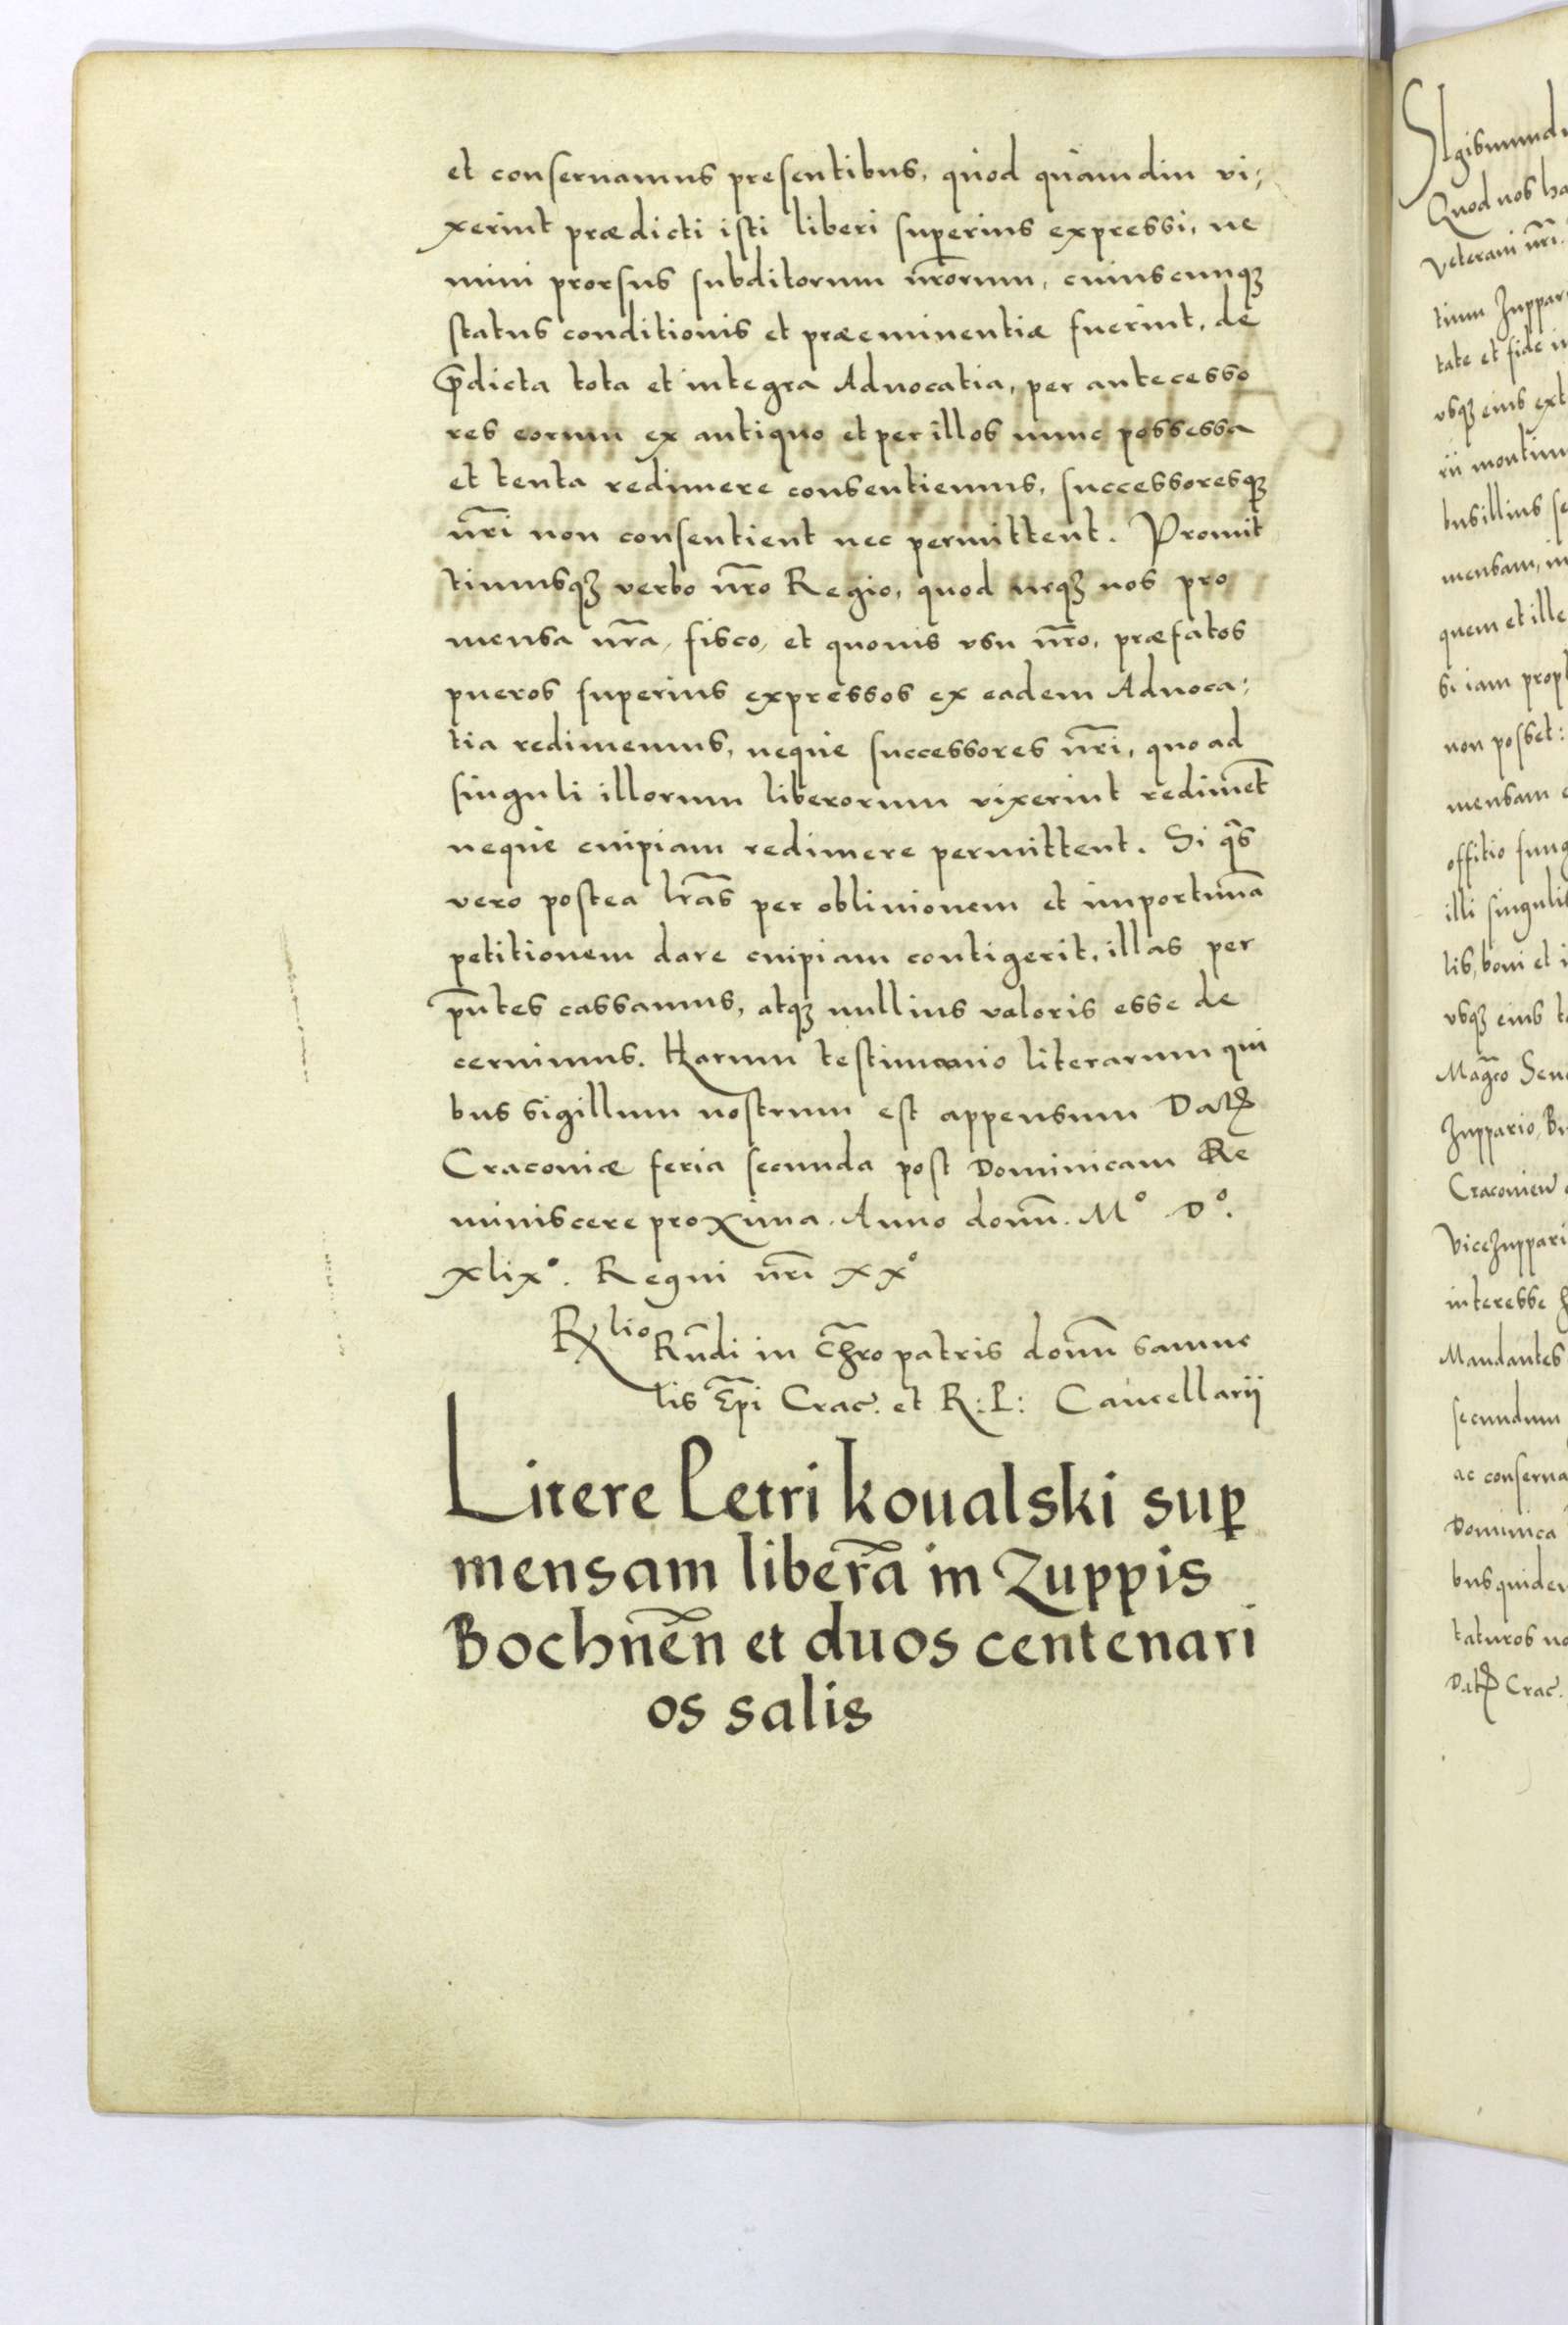 et conseruamus presentibus, quod quamdiu vi;
xerint prædicti isti liberi superius expressi, ne
mini prorsus subditorum nr̃orum, cuiuscunqꝫ
status conditionis et præeminentiæ fuerint, de
p̃dicta tota et integra Aduocatia, per antecesso
res eorum ex antiquo et per illos nunc possessa
et tenta redimere consentiemus, successoresqꝫ
nr̃i non consentient nec permittent. Promit
timusqꝫ verbo nr̃o Regio, quod neqꝫ nos pro
mensa nr̃a, fisco, et quouis vsu nr̃o, præfatos
pueros superius expressos ex eadem Aduoca;
tia redimemus, neque successores nr̃i, quo ad
singuli illorum liberorum vixerint redimẽt
neque cuipiam redimere permittent. Si q̃s
vero postea lr̃as per obliuionem et importunã
petitionem dare cuipiam contigerit, illas per
p̃ntes cassamus, atqꝫ nullius valoris esse de
cernimus. Harum testimonio literarum qui
bus sigillum nostrum est appensum Datꝭ
Cracouiæ feria secunda post Dominicam Re
miniscere proxima. Anno domñ. Mº Dº.
xlixº. Regni nr̃i xxº
Rlio Rñdi in Chr̃o patris domñ samue
lis Ep̃i Crac̃. et R: P: Cancellarij
Litere Petri koualski suꝑ
mensam liberã in Zuppis
Bochneñ et duos centenari
os salis
Sigismundu
Quod nos ha
veterani nr̃i
tium Zuppar
tate et fide i
vsqꝫ eius ext
rii montiu
bus illius se
mensam, in
quem et ille
si iam prop
non posset:
mensam e
offitio fung
illi singulis
lis, boni et i
vsqꝫ eius t
Mag̃co Seu
Zuppario, B
Cracouien̄
ViceZuppari
interesse
Mandantes
secundum
ac conserua
Dominica
bus quidem
taturos no
Datꝭ Crac.